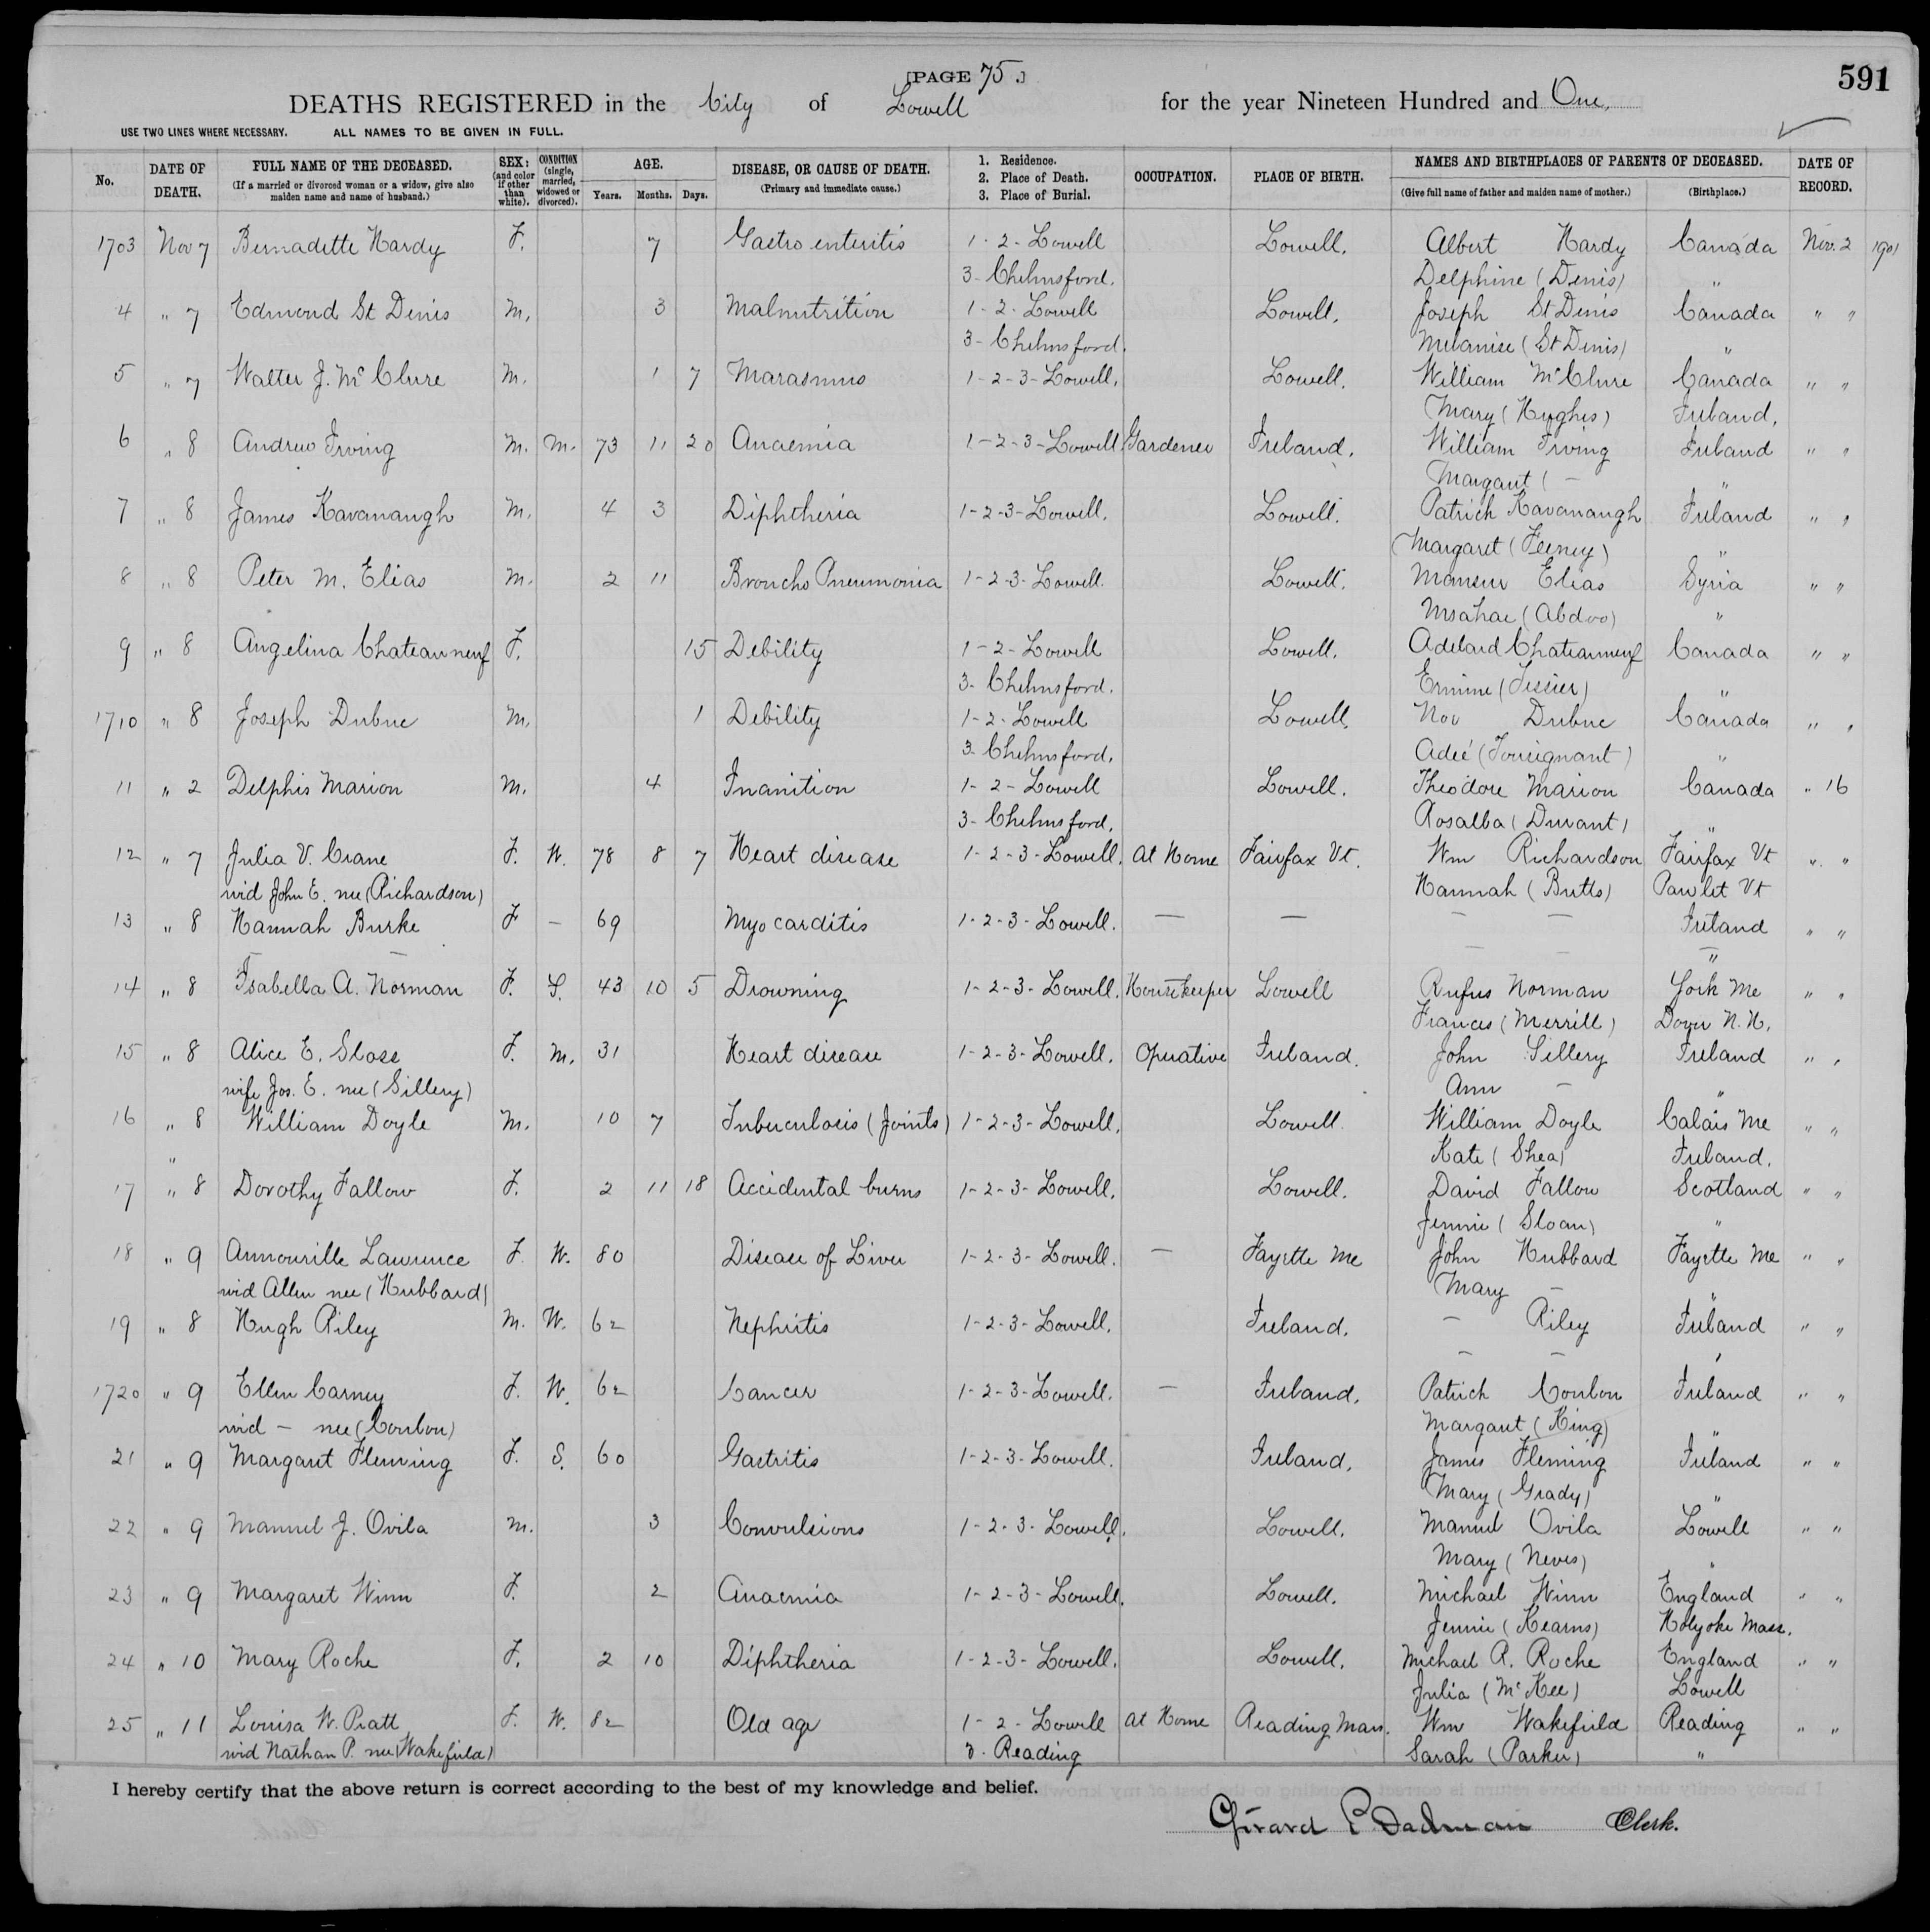 [PAGE 75.]
591
DEATHS REGISTERED in the City of Lowell for the year Nineteen Hundred and One.
USE TWO LINES WHERE NECESSARY. ALL NAMES TO BE GIVEN IN FULL.
No. DATE OF DEATH. FULL NAME OF THE DECEASED. (If a married or divorced woman or a widow, give also maiden name and name of husband.) SEX: (and color if other than white). CONDITION (single, married, widowed or divorced). AGE. Years. Months. Days. DISEASE, OR CAUSE OF DEATH. (Primary and immediate cause.) 1. Residence. 2. Place of Death. 3. Place of Burial. OCCUPATION. PLACE OF BIRTH. NAMES AND BIRTHPLACES OF PARENTS OF DECEASED. (Give full name of father and maiden name of mother.) (Birthplace.) DATE OF RECORD.
1703 Nov 7 Bernadette Hardy F. 7 Gastro enteritis 1-2-Lowell Lowell. Albert Hardy Canada Nov. 2 1901
3-Chelmsford. Delphine (Denis) "
4 " 7 Edmond St Denis M. 3 Malnutrition 1-2-Lowell Lowell. Joseph St Denis Canada " "
3-Chelmsford. (St Denis) "
5 " 7 Walter J. McClure M. 1 7 Marasmus 1-2-3-Lowell. Lowell. William McClure Canada " "
Mary (Hughes) Ireland.
6 " 8 Andrew Irving M. M. 73 11 20 Anaemia 1-2-3-Lowell. Gardener Ireland. William Irving Ireland " "
Margaret ( - "
7 " 8 James Kavanaugh M. 4 3 Diphtheria 1-2-3-Lowell. Lowell. Patrick Kavanaugh Ireland " "
Margaret (Feeney) "
8 " 8 Peter M. Elias M. 2 11 Broncho Pneumonia 1-2-3-Lowell. Lowell. Mansur Elias Syria " "
(Abdoo) "
9 " 8 Angelina Chateauneuf F. 15 Debility 1-2-Lowell Lowell. Adelard Chateauneuf Canada " "
3-Chelmsford. Ermine (Tessier) "
1710 " 8 Joseph Dubuc M. 1 Debility 1-2-Lowell Lowell. Dubuc Canada " "
3-Chelmsford. "
11 " 2 Delphis Marion M. 4 Inanition 1-2-Lowell Lowell. Theodore Marion Canada " 16
3-Chelmsford. Rosalba (Durant) "
12 " 7 Julia V. Crane F. W. 78 8 7 Heart disease 1-2-3-Lowell. At Home Fairfax Vt. Wm Richardson Fairfax Vt " "
wid John E. nee (Richardson) Hannah (Butts) Pawlet Vt
13 " 8 Hannah Burke F - 69 Myocarditis 1-2-3-Lowell. - - - - Ireland " "
- - - "
14 " 8 Isabella A. Norman F. S. 43 10 5 Drowning 1-2-3-Lowell. Housekeeper Lowell Rufus Norman York Me " "
Frances (Merrill) Dover N.H.
15 " 8 Alice E. Sloss F. M. 31 Heart disease 1-2-3-Lowell. Operative Ireland. John Sillery Ireland " "
wife Jos. E. nee (Sillery) Ann - "
16 " 8 William Doyle M. 10 7 Tuberculosis (Joints) 1-2-3-Lowell. Lowell William Doyle Calais Me " "
" Kate (Shea) Ireland.
17 " 8 Dorothy Fallow F. 2 11 18 Accidental burns 1-2-3-Lowell. Lowell. David Fallow Scotland " "
Jennie (Sloan) "
18 " 9 Lawrence F. W. 80 Disease of Liver 1-2-3-Lowell. - Fayette Me John Hubbard Fayette Me " "
wid Allen nee (Hubbard) Mary - "
19 " 8 Hugh Riley M. W. 62 Nephritis 1-2-3-Lowell. Ireland. - Riley Ireland " "
- - "
1720 " 9 Ellen Carney F. W. 62 Cancer 1-2-3-Lowell. - Ireland. Patrick Conlon Ireland " "
wid - nee (Conlon) Margaret (King) "
21 " 9 Margaret Fleming F. S. 60 Gastritis 1-2-3-Lowell. Ireland. James Fleming Ireland " "
Mary (Grady) "
22 " 9 Manuel J. Ovila M. 3 Convulsions 1-2-3-Lowell. Lowell. Manuel Ovila Lowell " "
Mary (Neves) "
23 " 9 Margaret Winn F. 2 Anaemia 1-2-3-Lowell. Lowell. Michael Winn England " "
Jennie (Kearns) Holyoke Mass.
24 " 10 Mary Roche F. 2 10 Diphtheria 1-2-3-Lowell. Lowell. Michael R. Roche England " "
Julia (McKee) Lowell
25 " 11 Louisa W. Pratt F. W. 82 Old age 1-2-Lowell At Home Reading Mass. Wm Wakefield Reading " "
wid Nathan P. nee (Wakefield) 3. Reading Sarah (Parker) "
I hereby certify that the above return is correct according to the best of my knowledge and belief.
Girard P. Dadman Clerk.